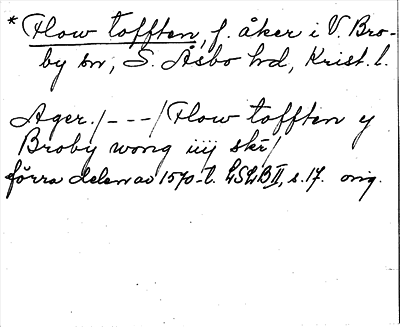 * Flow tofften, f. åker i V. Bro-
by sn, S. Åsbo hd, Krist. l.
Ager./---/Flow tofften y
Broby wong iiij skr/
förra delen av 1570-t. LSLB II, s. 17. orig.